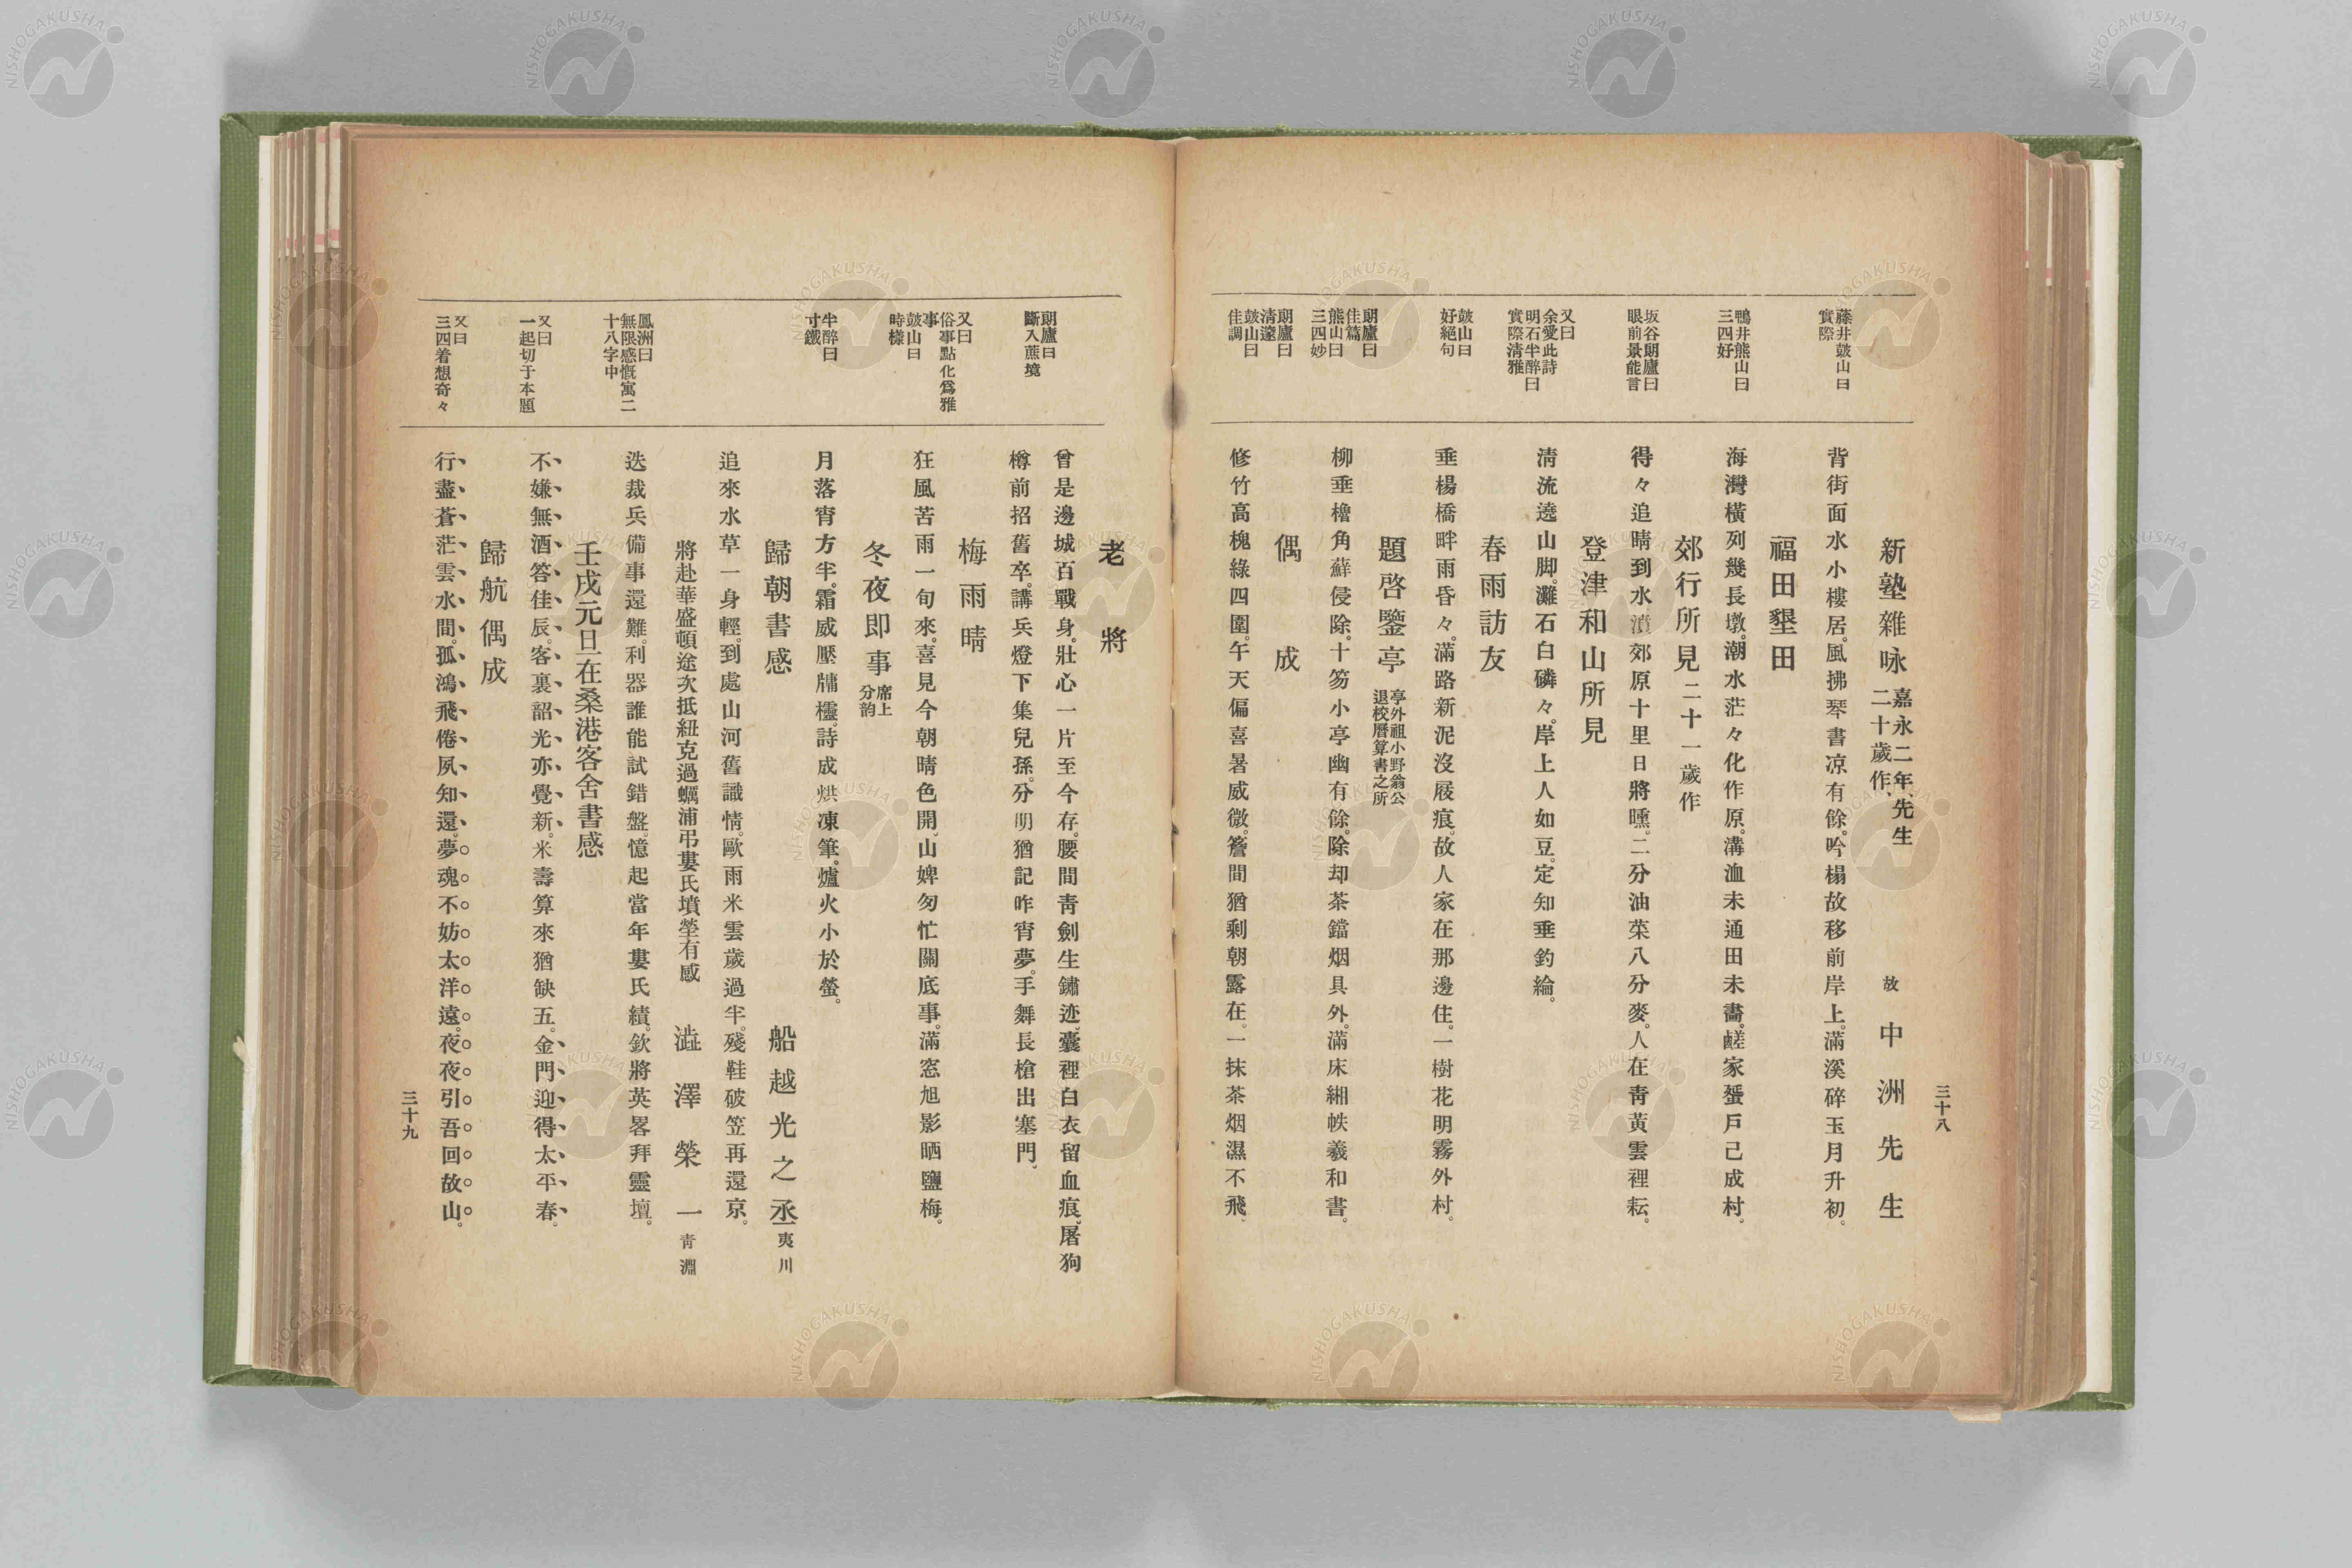 三十八
新塾雜咏 嘉永二年、先生二十歲作、 故 中洲先生
藤井皷山曰
實際
背街面水小樓居。風拂琴書凉有餘。吟榻故移前岸上。滿溪碎玉月升初。
福田墾田
鴨井熊山曰
三四好
海灣橫列幾長墩。潮水茫々化作原。溝洫未通田未畫。鹾家蜑戶已成村。
郊行所見 二十一歲作
坂谷朗廬曰
眼前景能言
得々追晴到水濆。郊原十里日將曛。二分油菜八分麥。人在靑黃雲裡耘。
登津和山所見
又曰
余愛此詩
明石半醉曰
實際清雅
淸流遶山脚。灘石白磷々。岸上人如豆。定知垂釣綸。
春雨訪友
皷山曰
好絕句
垂楊橋畔雨昏々。滿路新泥沒屐痕。故人家在那邊住。一樹花明霧外村。
題啓鑒亭 亭外祖小野翁公退校曆算書之所
朗廬曰
佳篇
熊山曰
三四妙
柳垂檐角蘚侵除。十笏小亭幽有餘。除却茶鐺烟具外。滿床緗帙羲和書。
偶成
朗廬曰
淸邃
皷山曰
佳調
修竹高槐綠四圍。午天偏喜暑威微。簷間猶剩朝露在。一抹茶烟濕不飛。
老將
曾是邊城百戰身。壯心一片至今存。腰間靑劍生鏽迹。囊裡白衣留血痕。屠狗
朗廬曰
斷入蔗境
樽前招舊卒。講兵燈下集兒孫。分明猶記昨宵夢。手舞長槍出塞門。
梅雨晴
又曰
俗事點化爲雅
事
皷山曰
時樣
狂風苦雨一旬來。喜見今朝晴色開。山婢匆忙關底事。滿窓旭影晒鹽梅。
冬夜即事 席上分韵
半醉曰
寸鐵
月落宵方半。霜威壓牖櫺。詩成烘凍筆。爐火小於螢。
歸朝書感 船越光之丞 夷川
追來水草一身輕。到處山河舊識情。歐雨米雲歲過半。殘鞋破笠再還京。
將赴華盛頓途次抵紐克過蠣浦弔婁氏墳塋有感 澁澤榮一 靑淵
鳳洲曰
無限感慨寓二
十八字中
迭裁兵備事還難。利器誰能試錯盤。憶起當年婁氏績。欽將英畧拜靈壇。
壬戌元旦在桑港客舍書感
又曰
一起切于本題
不嫌無酒答佳辰。客裏韶光亦覺新。米壽算來猶缺五。金門迎得太平春。
歸航偶成
又曰
三四着想奇々
行盡蒼茫雲水間。孤鴻飛倦夙知還。夢魂不妨太洋遠。夜夜引吾回故山。
三十九